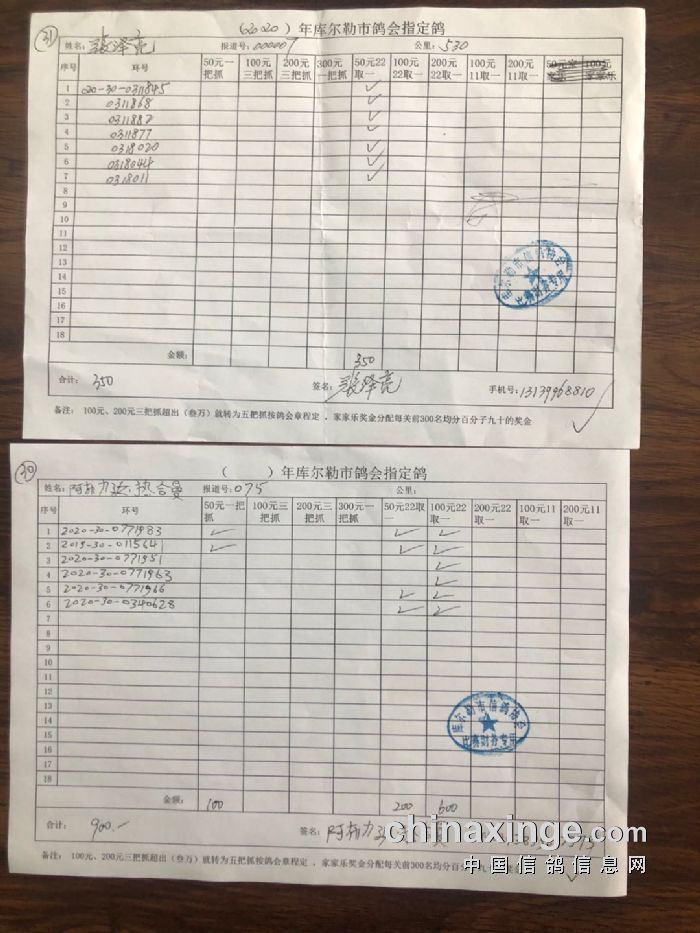 31
(2020)年库尔勒市鸽会指定鸽
姓名: 张泽亮 报道号: 000007 公里: 530
序号 环号 50元一把抓 100元三把抓 200元三把抓 300元一把抓 50元22取一 100元22取一 200元22取一 100元11取一 200元11取一
1 020-30-0311845 ✓
2 0311868 ✓
3 0311882 ✓
4 0311877 ✓
5 0318020 ✓
6 0318044 ✓
7 0318011 ✓
8
9
10
11
12
13
14
15
16
17
18
库尔勒市信鸽协会
比赛财务专用
金额: 350
合计: 350 签名: 张泽亮 手机号: 13139968810 ✓
备注: 100元、200元三把抓超出(叁万)就转为五把抓按鸽会章程定.家家乐奖金分配每关前300名均分百分子九十的奖金
( )年库尔勒市鸽会指定鸽
姓名: 报道号: 075 公里:
序号 环号 50元一把抓 100元三把抓 200元三把抓 300元一把抓 50元22取一 100元22取一 200元22取一 100元11取一 200元11取一
1 2020-30-0771983 ✓ ✓ ✓
2 2019-30-0115641 ✓ ✓ ✓
3 2020-30-0771951 ✓
4 2020-30-0771963 ✓
5 2020-30-0771966 ✓ ✓
6 2020-30-0340628 ✓ ✓
7
8
9
10
11
12
13
14
15
16
17
18
库尔勒市信鸽协会
比赛财务专用
金额: 100 200 600
合计: 900.- 签名:
备注: 100元、200元三把抓超出(叁万)就转为五把抓按鸽会章程定.家家乐奖金分配每关前300名均分百分子九十的奖金 ✓
chinaxinge.com
中国信鸽信息网